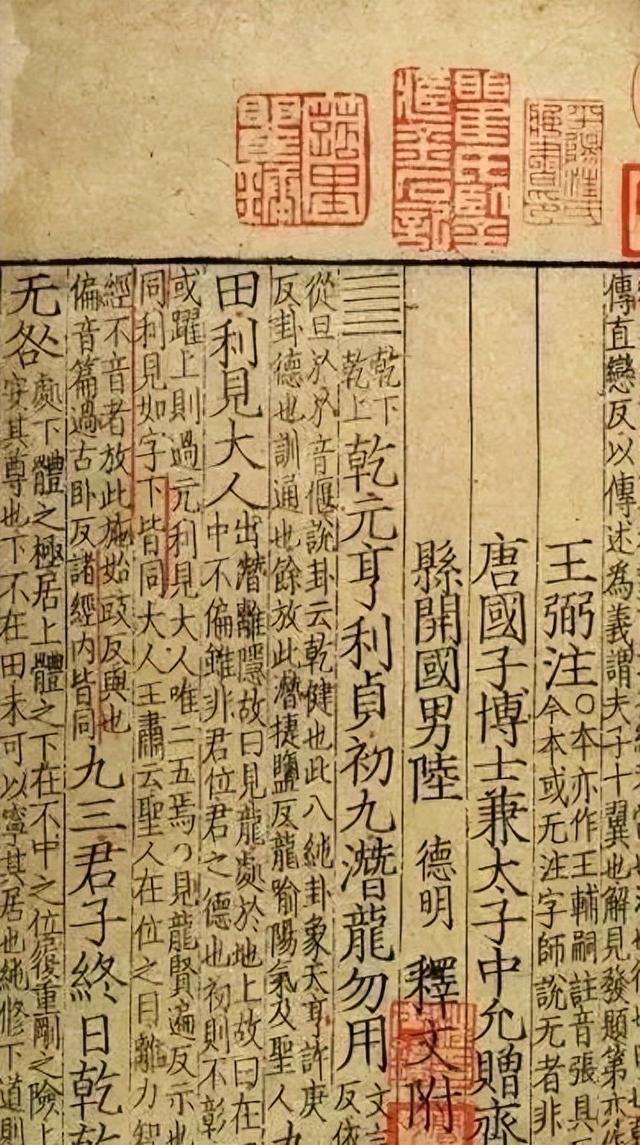 傳直戀反以傳述為義謂夫子十翼也解見發題第亦作
王弼注○本亦作王輔嗣註音張具
今本或无注字師說无者非
唐國子博士兼太子中允贈齊
縣開國男陸 德明 釋文附
䷀乾下乾上乾元亨利貞初九潛龍勿用文言
反依
從旦於㫃音偃說卦云乾健也此八純卦象天亨許庚
反卦德也訓通也餘放此潛捷鹽反龍喻陽氣及聖人九
田利見大人出潛離隱故曰見龍處於地上故曰在
中不偏雖非君位君之德也初則不彰
或躍上則過亢利見大人唯二五焉○見龍賢遍反示也
同利見如字下皆同大人王肅云聖人在位之目離力智
經不音者放此施始豉反與也
偏音篇過古卧反諸經內皆同九三君子終日乾乾
无咎處下體之極居上體之下在不中之位履重剛之險上
安其尊也下不在田未可以寧其居也純修下道則